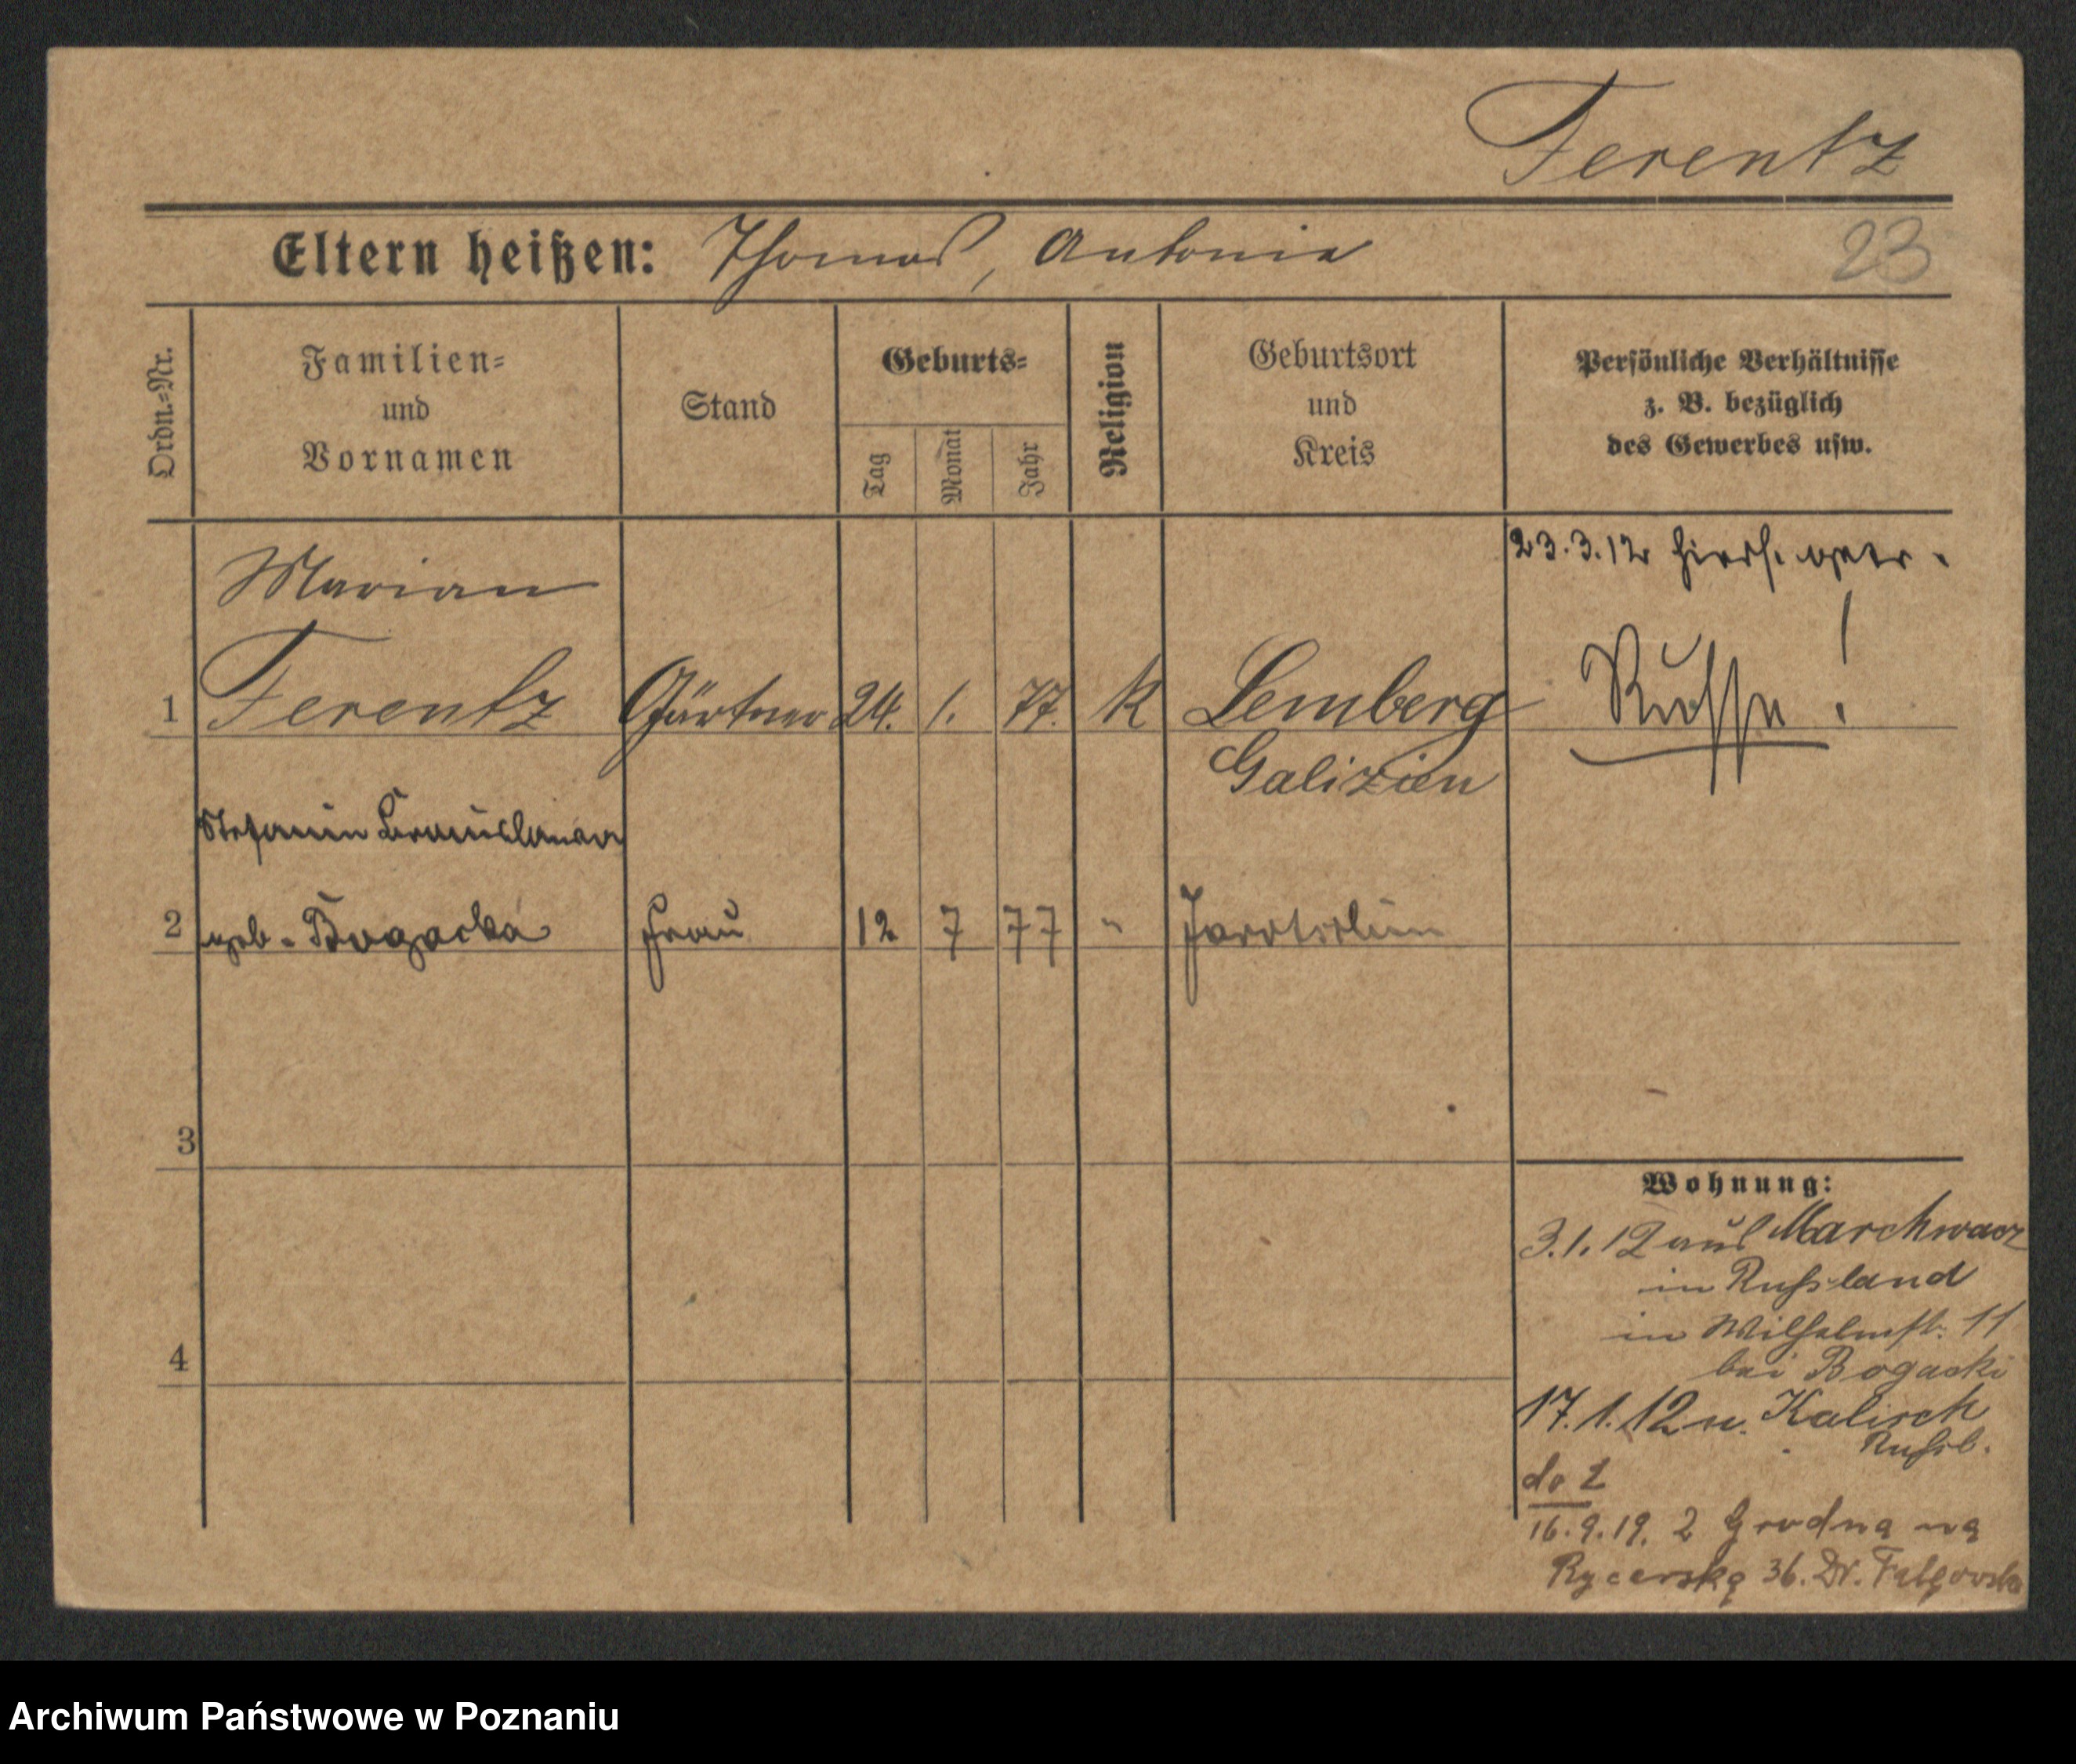 Ferentz
Eltern heißen: Thomas, Antonie
23
Ordn.-Nr.
Familien-
und
Vornamen
Stand
Geburts-
Tag
Monat
Jahr
Religion
Geburtsort
und
Kreis
Persönliche Verhältnisse
z. B. bezüglich
des Gewerbes usw.
23.3.12
Marian
1 Ferentz Gärtner 24. 1. 77. k Lemberg Russe!
Galizien
Stefanie Bronislawa
2 geb. Bogacka Frau 12 7 77 "
3
4
Wohnung:
3.1.12 aus Marchwacz
in Russland
in Wilhelmst. 11
bei Bogacki
17.1.12 n. Kalisch
Russl.
do 2
16.9.19. 2 Grodna na
Rycerską 36. Dr.
Archiwum Państwowe w Poznaniu